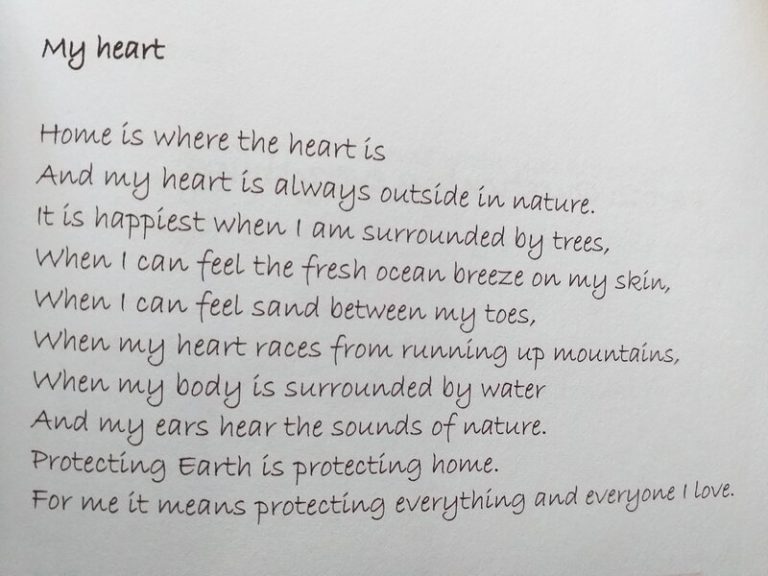 My heart
Home is where the heart is
And my heart is always outside in nature.
It is happiest when I am surrounded by trees,
When I can feel the fresh ocean breeze on my skin,
When I can feel sand between my toes,
When my heart races from running up mountains,
When my body is surrounded by water
And my ears hear the sounds of nature.
Protecting Earth is protecting home.
For me it means protecting everything and everyone I love.